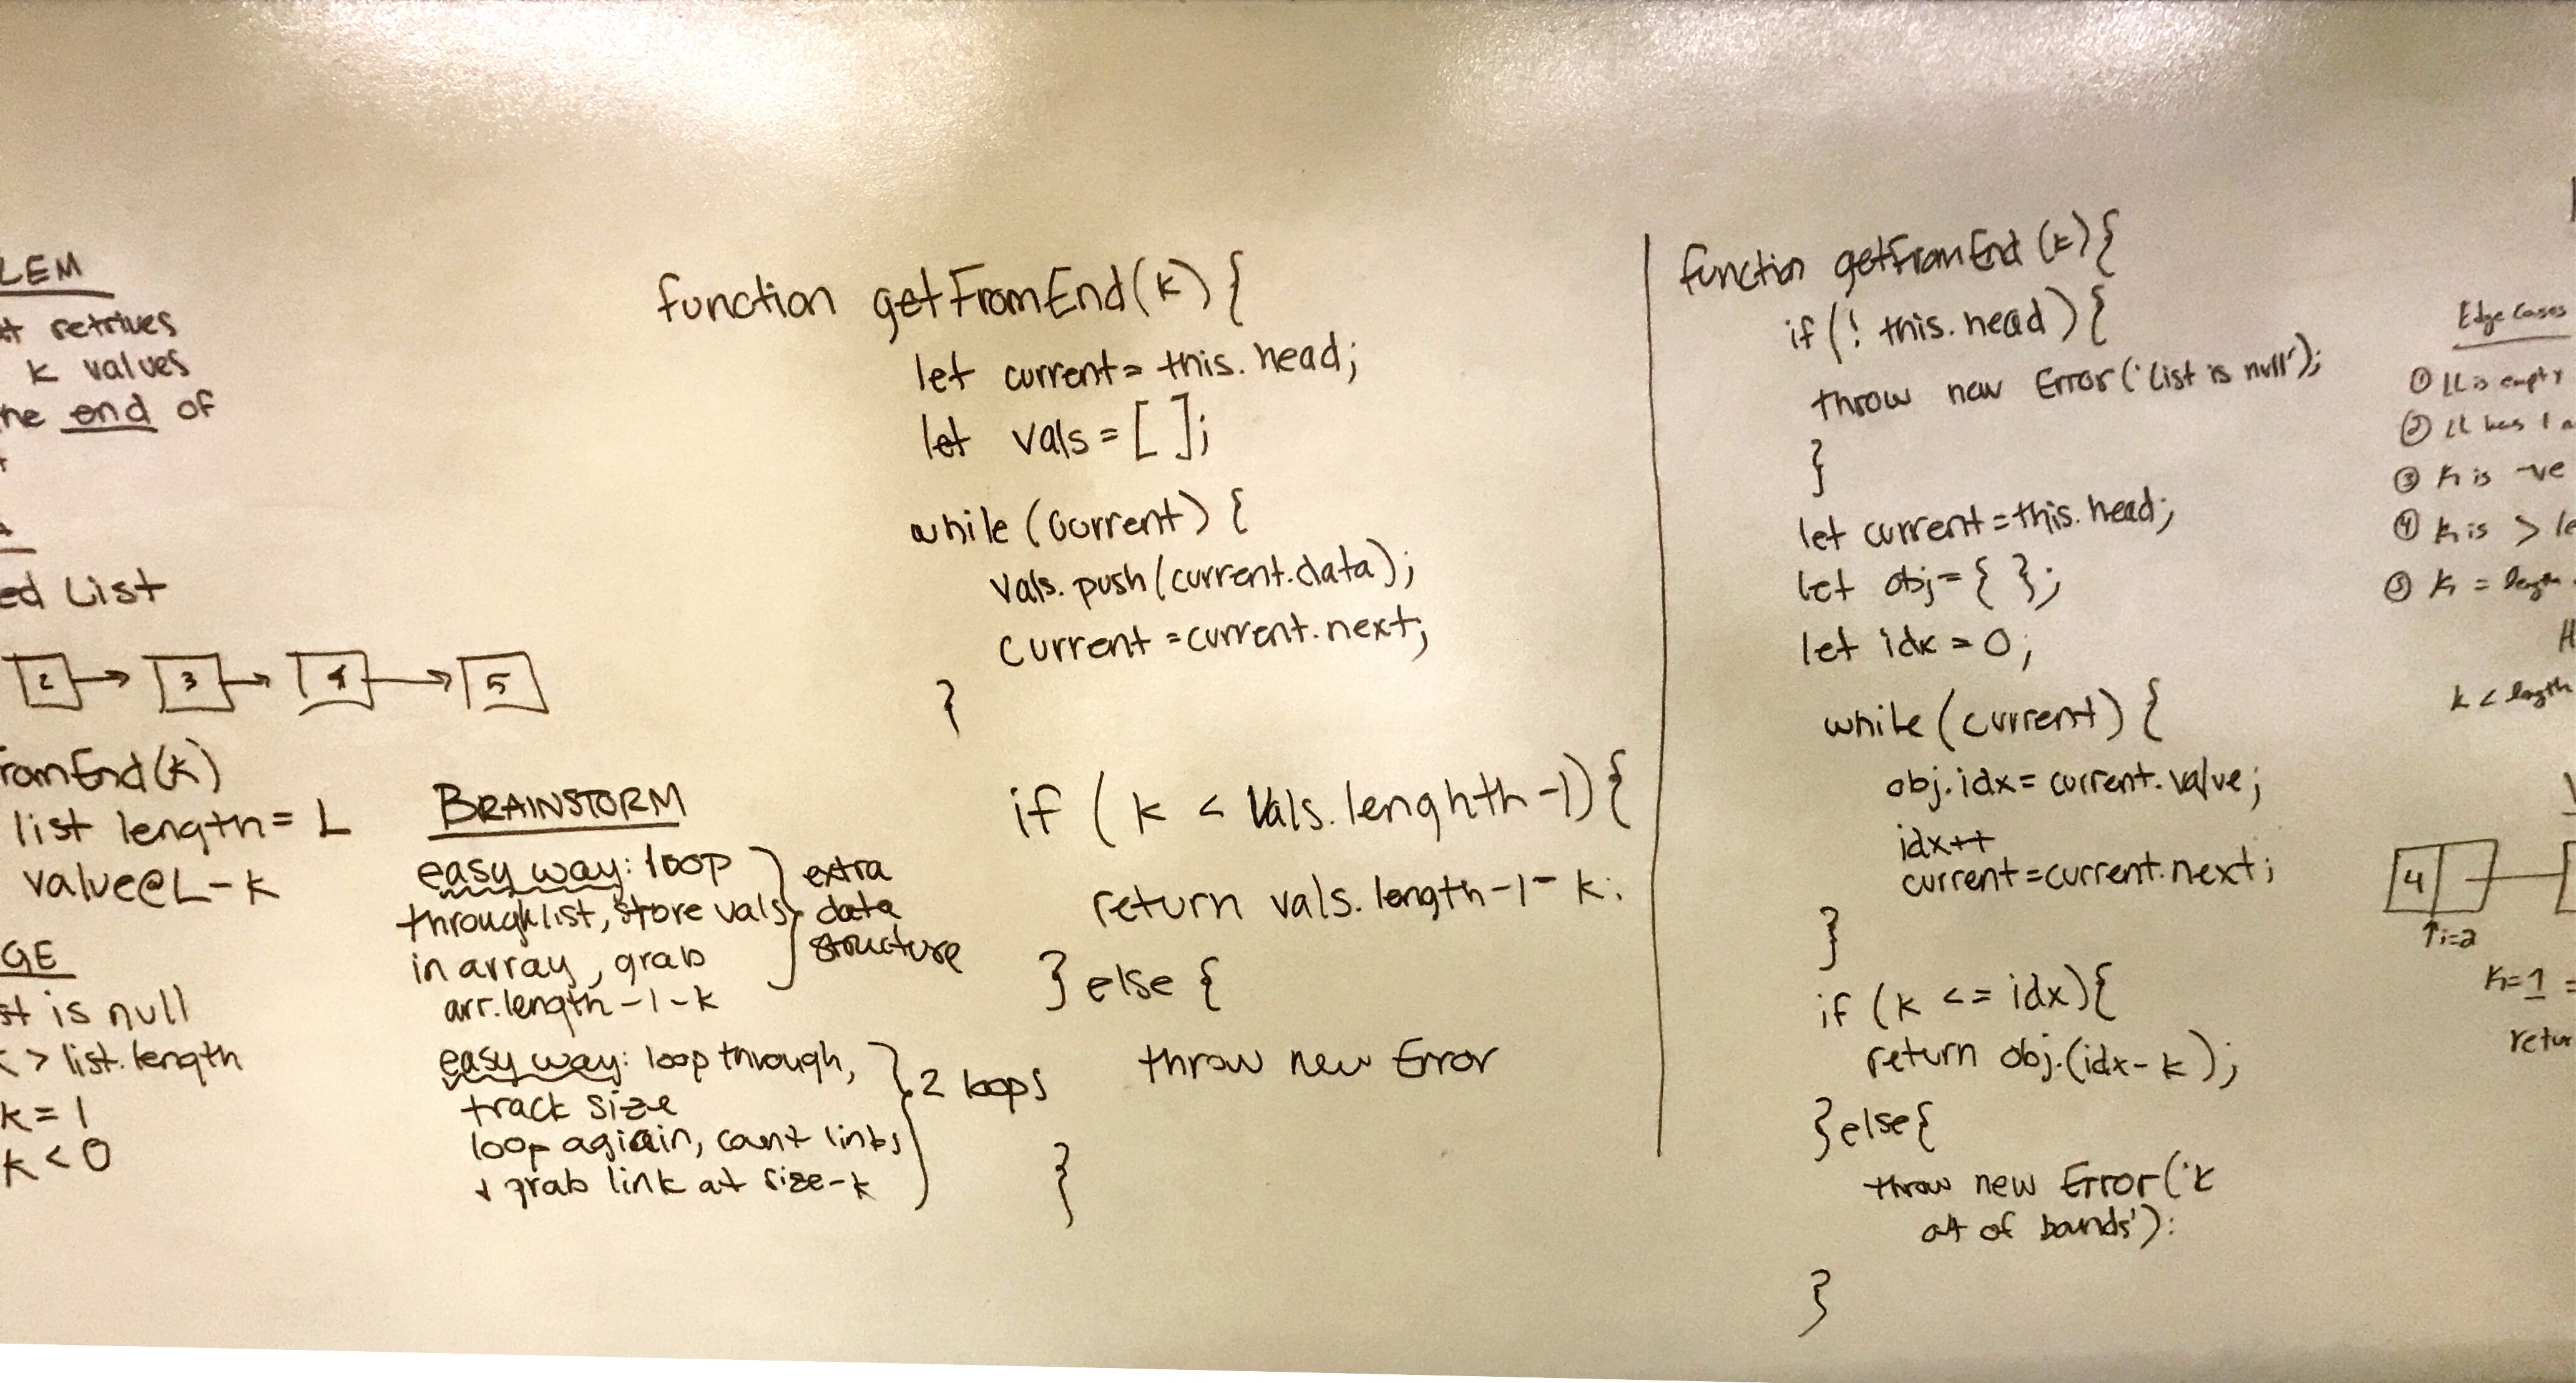 LEM
retrives
k values
end of
List
2 3 4 5
romEnd(k)
list length = L
value@L-k
GE
st is null
> list.length
k = 1
k < 0
BRAINSTORM
easy way: loop
through list, store vals
in array, grab
arr.length -1 -k
extra
data
structure
easy way: loop through,
track size
loop again, count links
grab link at size-k
2 loops
function getFromEnd(k) {
let current = this.head;
let vals = [ ];
while (current) {
vals.push(current.data);
current = current.next;
}
if ( k < vals.lenghth -1) {
return vals.length -1 - k;
} else {
throw new Error
}
function getFromEnd (k) {
if (! this.head) {
throw new Error('list is null');
}
let current = this.head;
let obj = { };
let idx = 0;
while (current) {
obj.idx = current.value;
idx++
current = current.next;
}
if (k <= idx) {
return obj.(idx-k);
} else {
throw new Error('k
out of bounds');
}
Edge Cases
① LL is empty
② LL has 1
③ k is -ve
④ k is >
⑤ k = length
k < length
4
i=2
k=1 =
retur